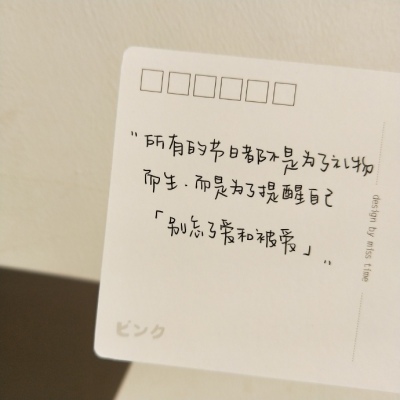 “所有的节日都不是为了礼物
而生.而是为了提醒自己
「别忘了爱和被爱」”
design by miss time
ピンク